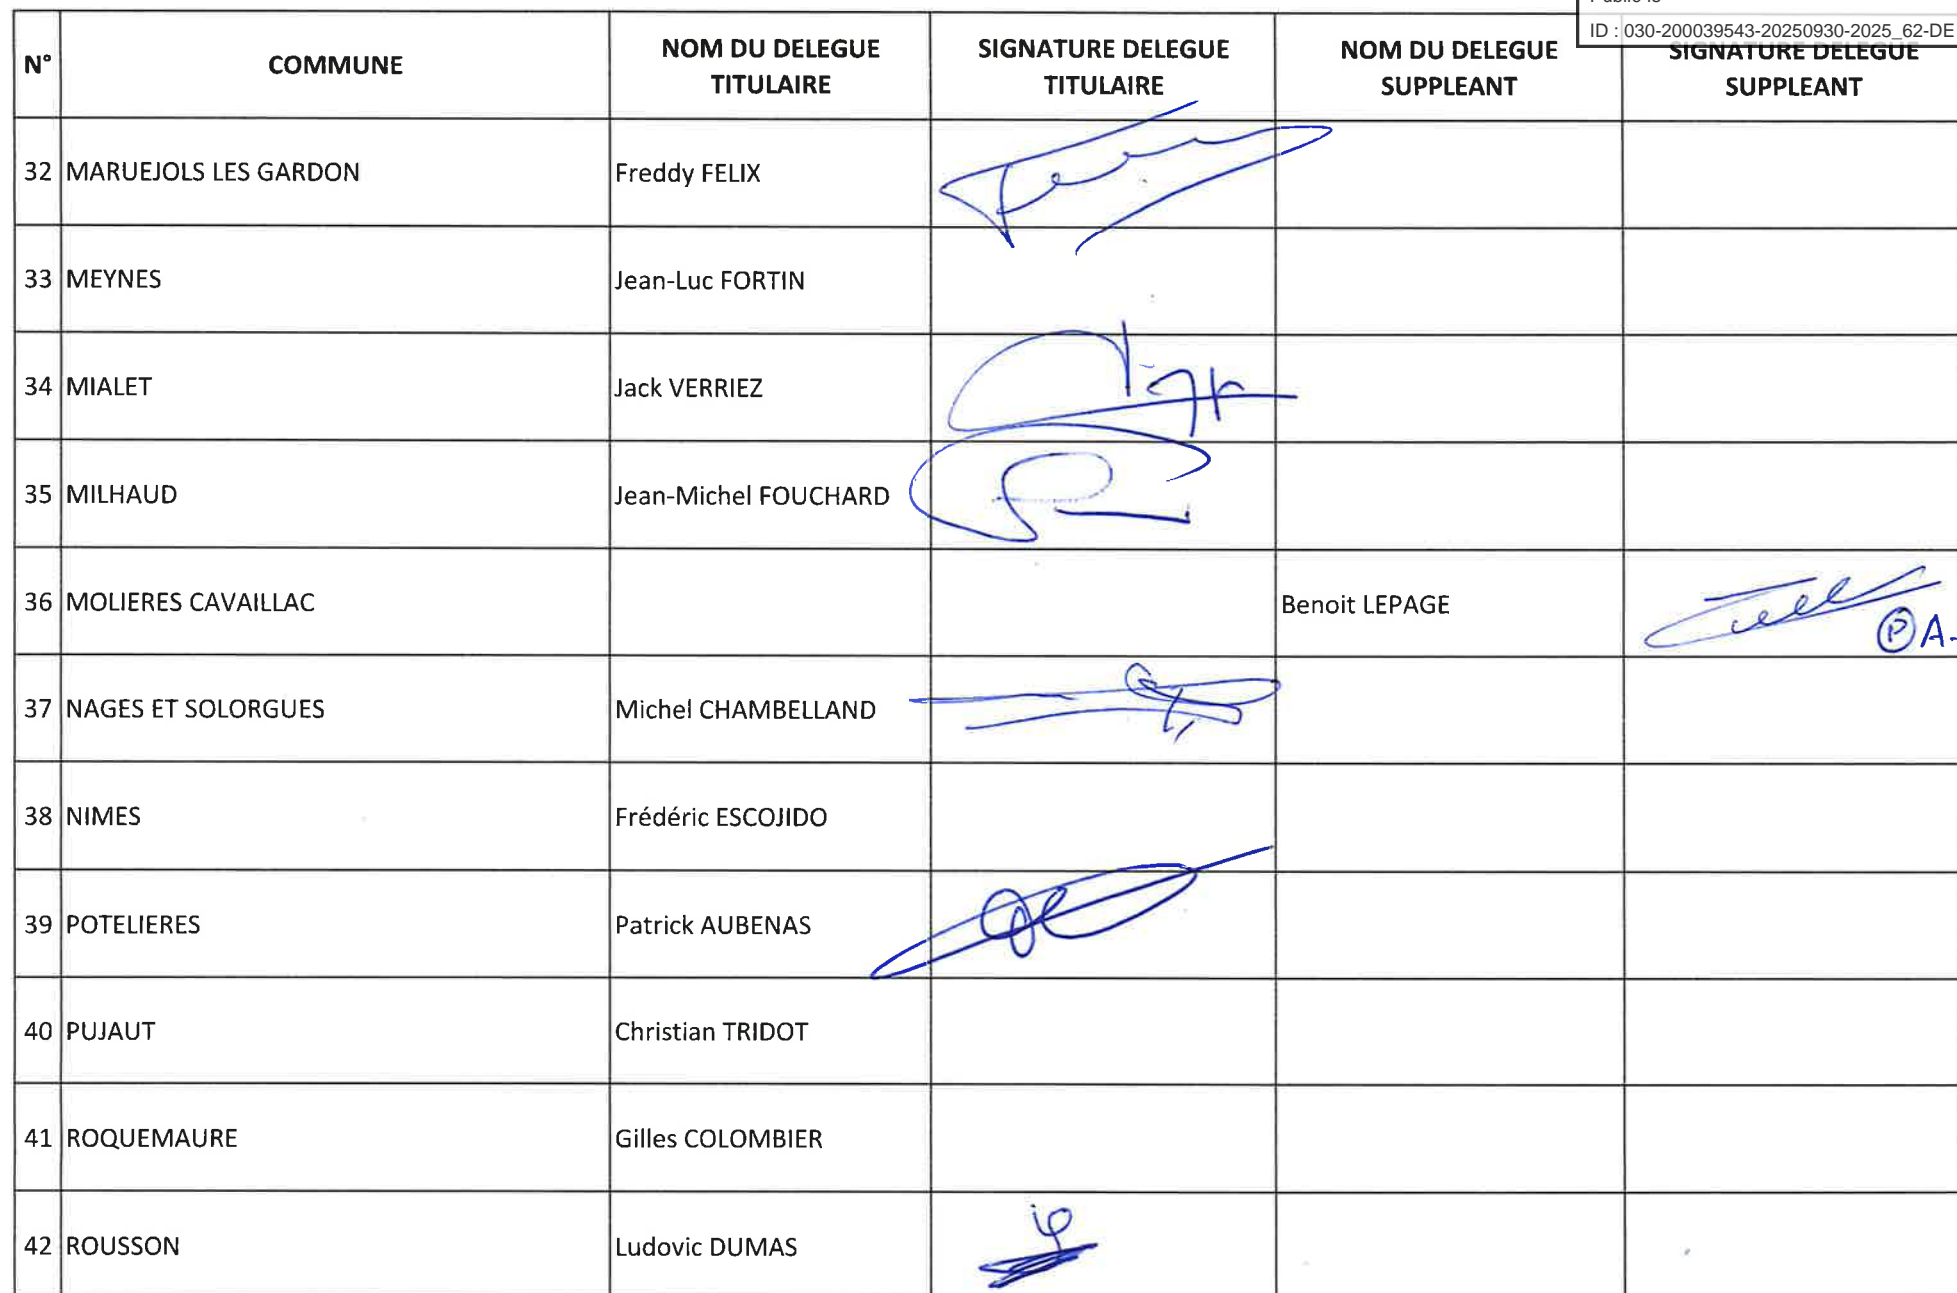 ID : 030-200039543-20250930-2025_62-DE
N° COMMUNE NOM DU DELEGUE TITULAIRE SIGNATURE DELEGUE TITULAIRE NOM DU DELEGUE SUPPLEANT SIGNATURE DELEGUE SUPPLEANT
32 MARUEJOLS LES GARDON Freddy FELIX
33 MEYNES Jean-Luc FORTIN
34 MIALET Jack VERRIEZ
35 MILHAUD Jean-Michel FOUCHARD
36 MOLIERES CAVAILLAC Benoit LEPAGE
37 NAGES ET SOLORGUES Michel CHAMBELLAND
38 NIMES Frédéric ESCOJIDO
39 POTELIERES Patrick AUBENAS
40 PUJAUT Christian TRIDOT
41 ROQUEMAURE Gilles COLOMBIER
42 ROUSSON Ludovic DUMAS